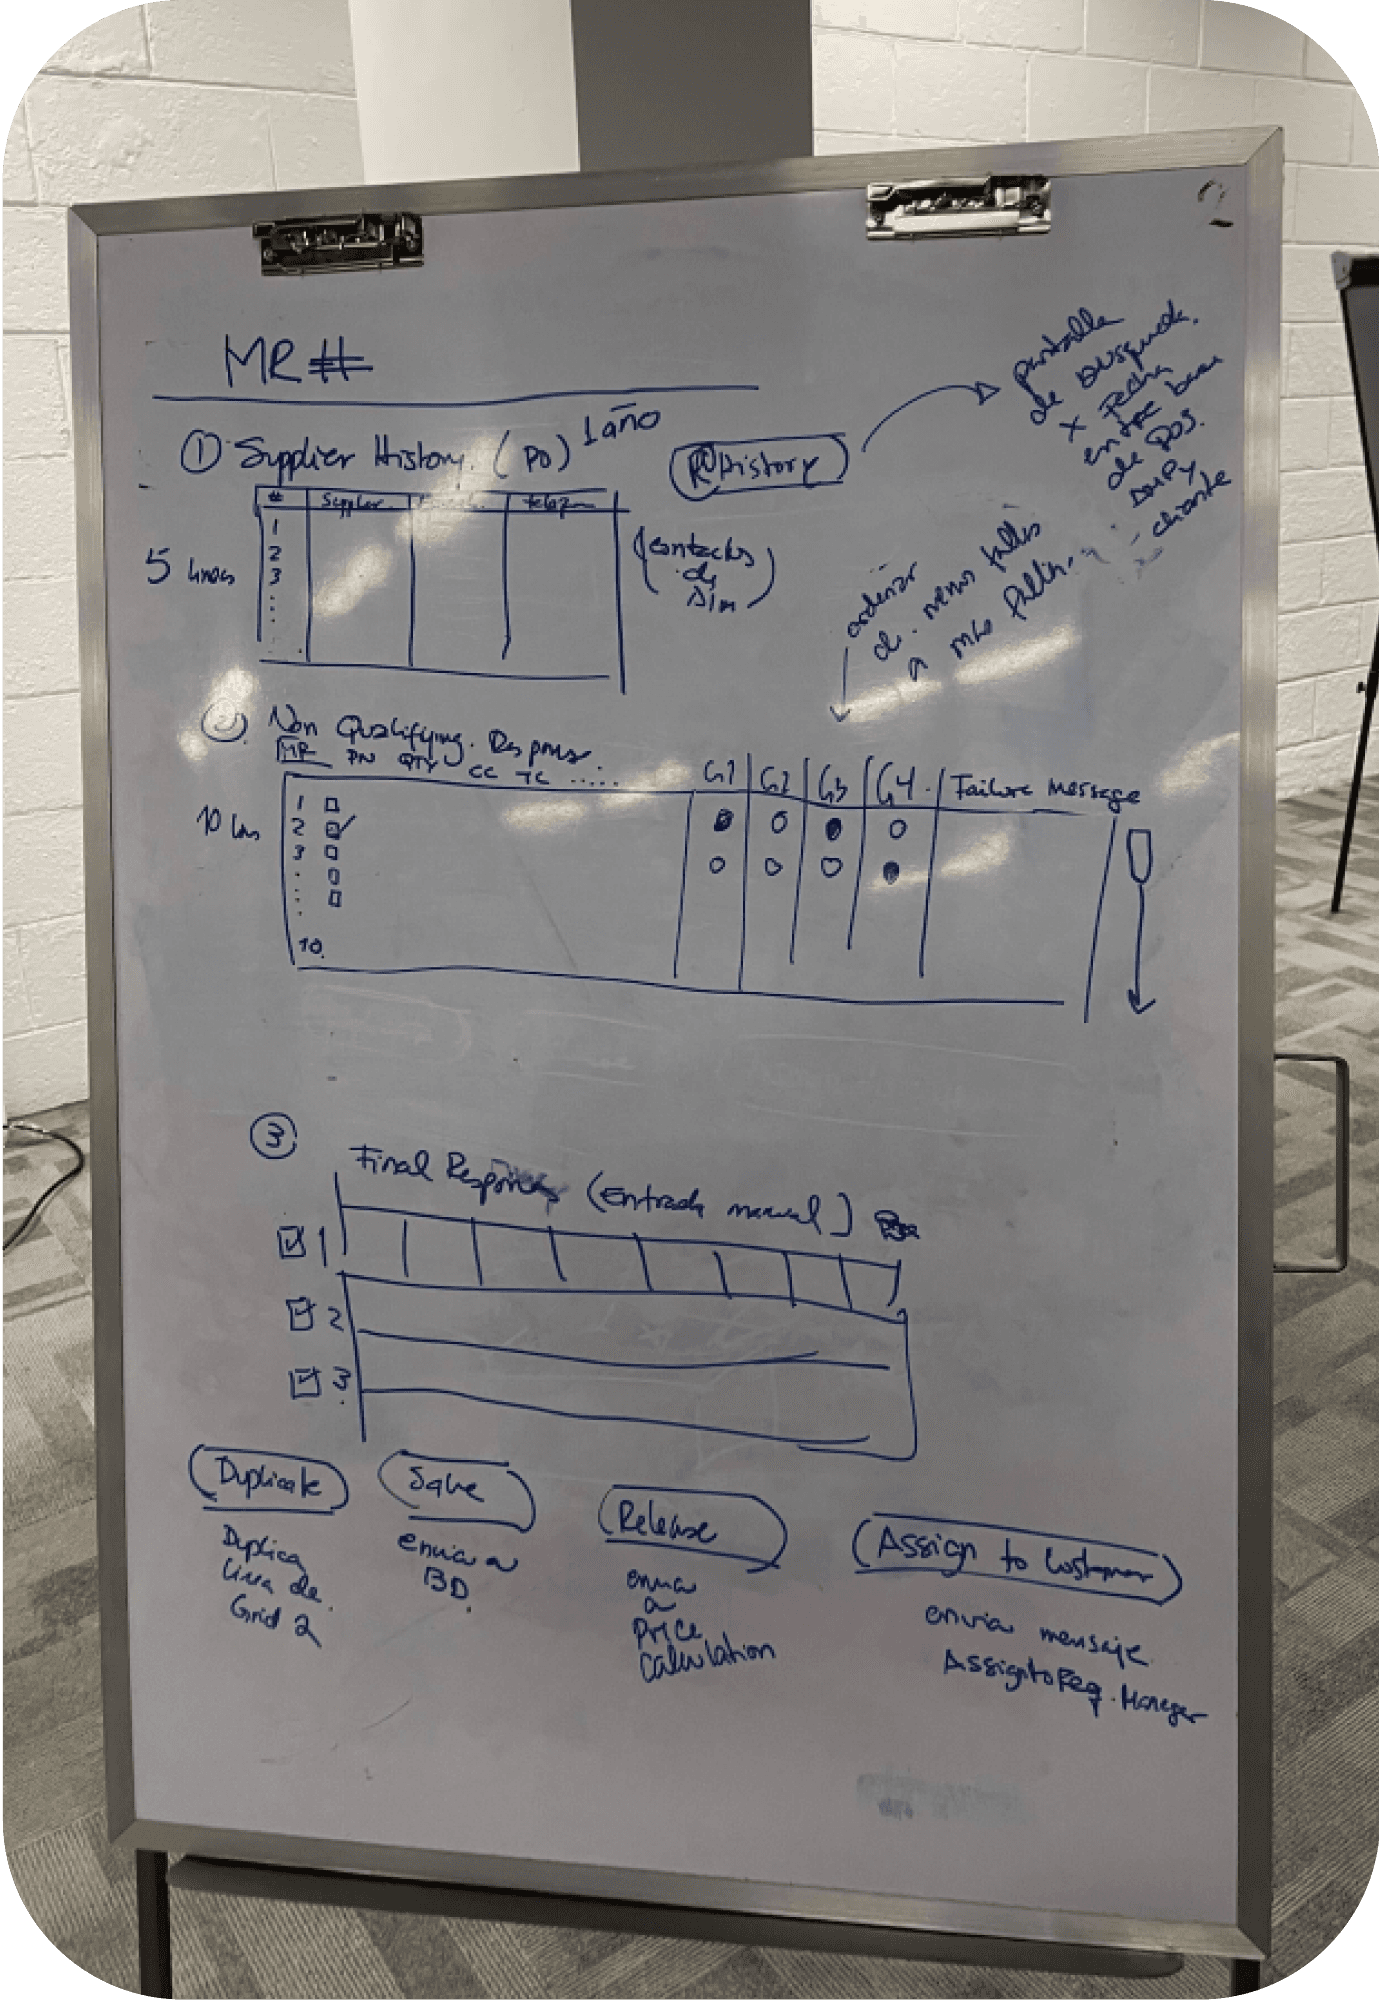 2
MR #
① Supplier History. (PO) 1año
PO History
pantalla
de busqueda
x fecha
entre base
de POS.
# Supplier telefon
1
2
3
5 lineas
(contactos
de
Dim)
ordenar
de menos fallas
a mas fallas
cliente
② Non Qualifying Response
MR PN QTY CC TC .....
G1 G2 G3 G4 Failure Message
10 Lns
1
2
3
10
③
Final Response (Entrada manual)
1
2
3
Duplicate
Duplica
linea de
Grid 2
Save
envia a
BD
Release
envia
a
Price
Calculation
Assign to Customer
envia mensaje
AssigntoReq.Manager